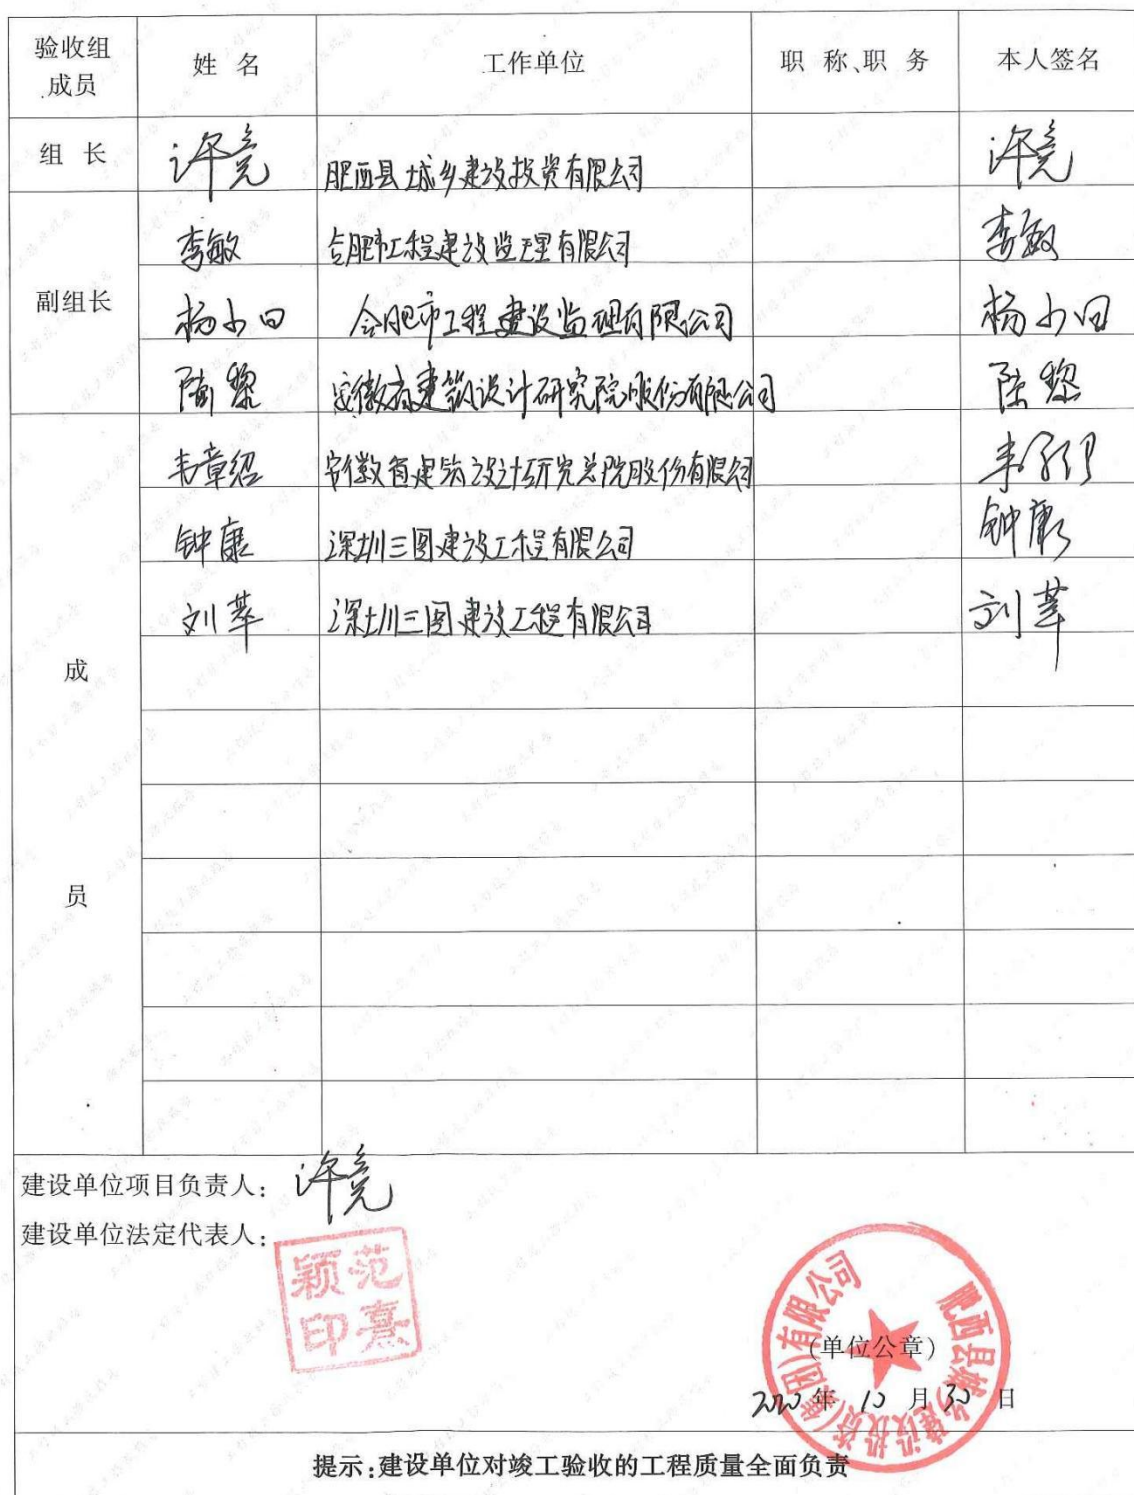 验收组成员 姓 名 工作单位 职 称、职 务 本人签名
组 长 许亮 肥西县城乡建设投资有限公司 许亮
副组长
李敏 合肥市工程建设监理有限公司 李敏
杨小回 合肥市工程建设监理有限公司 杨小回
陶黎 安徽省建筑设计研究院股份有限公司 陶黎
成员
韦章绍 安徽省建筑设计研究总院股份有限公司
钟康 深圳三图建设工程有限公司 钟康
刘莘 深圳三图建设工程有限公司 刘莘
建设单位项目负责人: 许亮
建设单位法定代表人:
范熹颖印
肥西县城乡建设投资(集团)有限公司
(单位公章)
2020年 10 月 30 日
提示:建设单位对竣工验收的工程质量全面负责